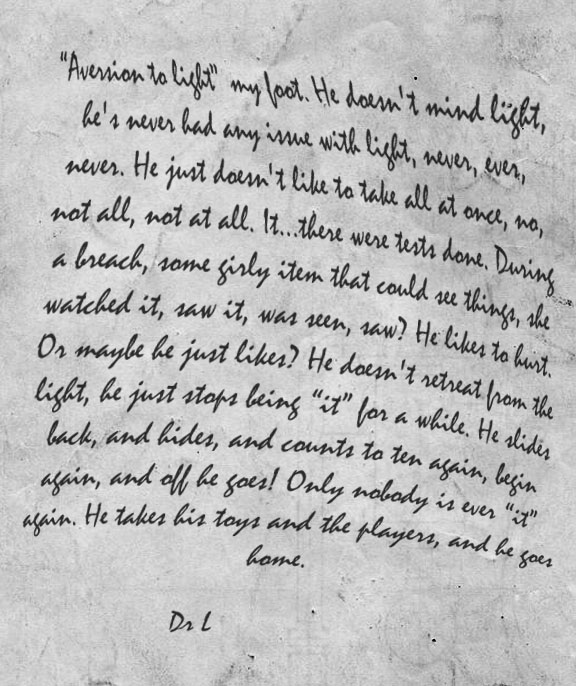 "Aversion to light" my foot. He doesn't mind light,
he's never had any issue with light, never, ever,
never. He just doesn't like to take all at once, no,
not all, not at all. It...there were tests done. During
a breach, some girly item that could see things, she
watched it, saw it, was seen, saw? He likes to hurt.
Or maybe he just likes? He doesn't retreat from the
light, he just stops being "it" for a while. He slides
back, and hides, and counts to ten again, begin
again, and off he goes! Only nobody is ever "it"
again. He takes his toys and the players, and he goes
home.
Dr L